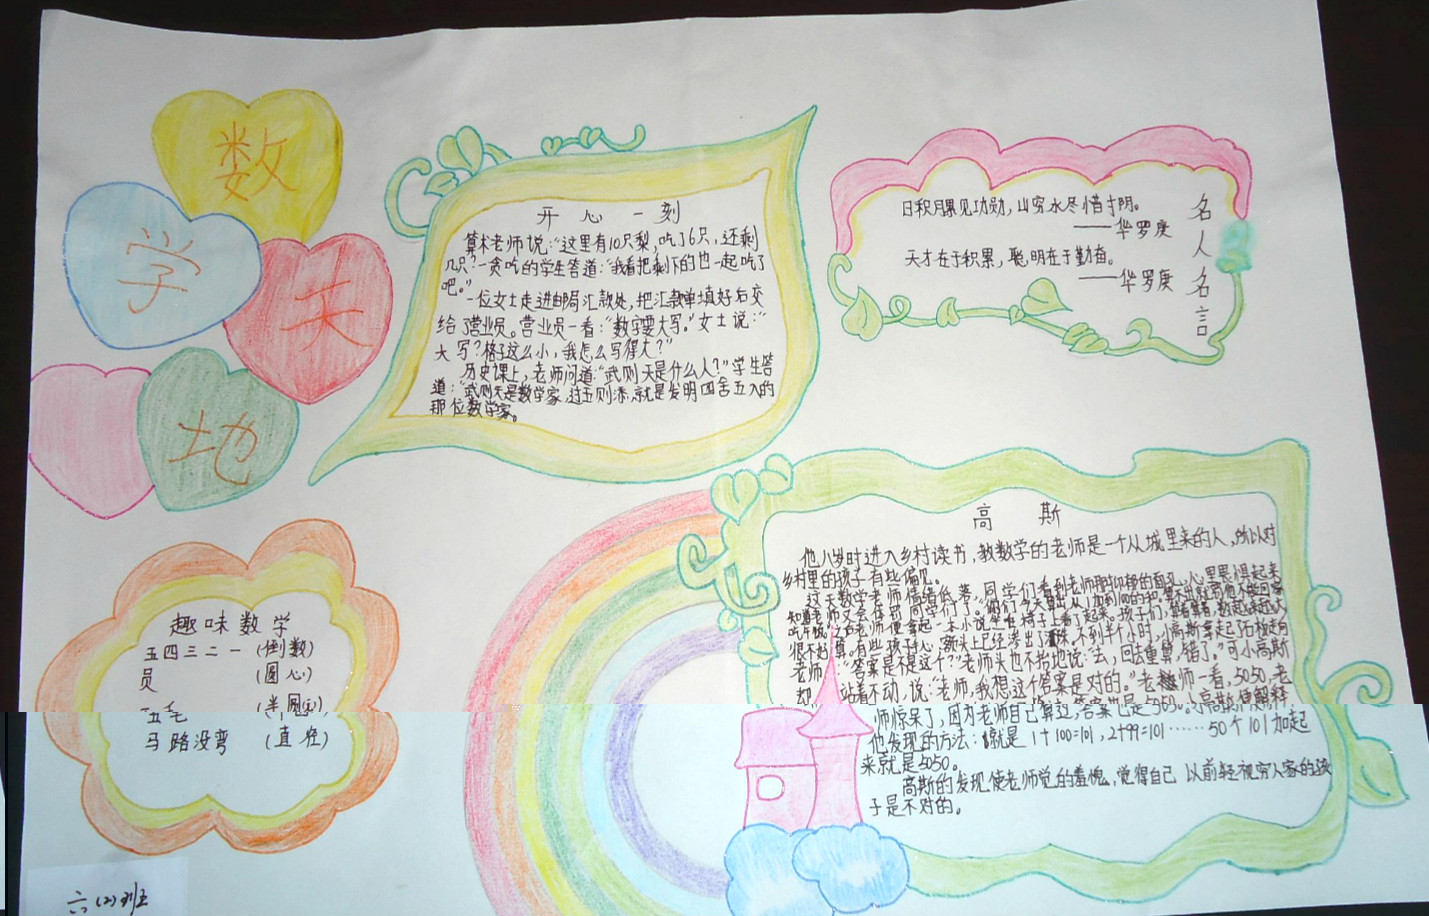 数
学
天
地
开心一刻
算术老师说：“这里有10只梨，吃了6只，还剩
几只？”一贪吃的学生答道：“我看把剩下的也一起吃了
吧。”
一位女士走进邮局汇款处，把汇款单填好后交
给了营业员。营业员一看：“数字要大写。”女士说：“
大写？格子这么小，我怎么写得大？”
历史课上，老师问道：“武则天是什么人？”学生答
道：“武则天是数学家，过五则添，就是发明四舍五入的
那位数学家。
名人名言
日积月累见功勋，山穷水尽惜寸阴。
——华罗庚
天才在于积累，聪明在于勤奋。
——华罗庚
趣味数学
五四三二一（倒数）
员（圆心）
五毛（半圆）
马路没弯（直径）
六(2)班
高斯
他八岁时进入乡村读书，教数学的老师是一个从城里来的人，所以对
乡村里的孩子有些偏见。
这天数学老师情绪低落，同学们看到老师抑郁的面孔，心里畏惧起来
知道老师又会在
老师便拿起一本小说坐在椅子上看了起来。孩子们
有些孩子心 额头上已经渗出了 不到半个小时，小高斯拿起了石板走向
老师 “答案是不是这个？”老师头也不抬地说：“去，回去重算，错了。”可小高斯
却 站着不动，说：“老师，我想这个答案是对的。”老师一看，5050，老
师惊呆了，因为老师自己算过，答案也是5050。小高斯便解释
他发现的方法：就是1+100=101，2+99=101……50个101加起
来就是5050。
高斯的发现使老师觉的羞愧，觉得自己以前轻视穷人家的孩
子是不对的。